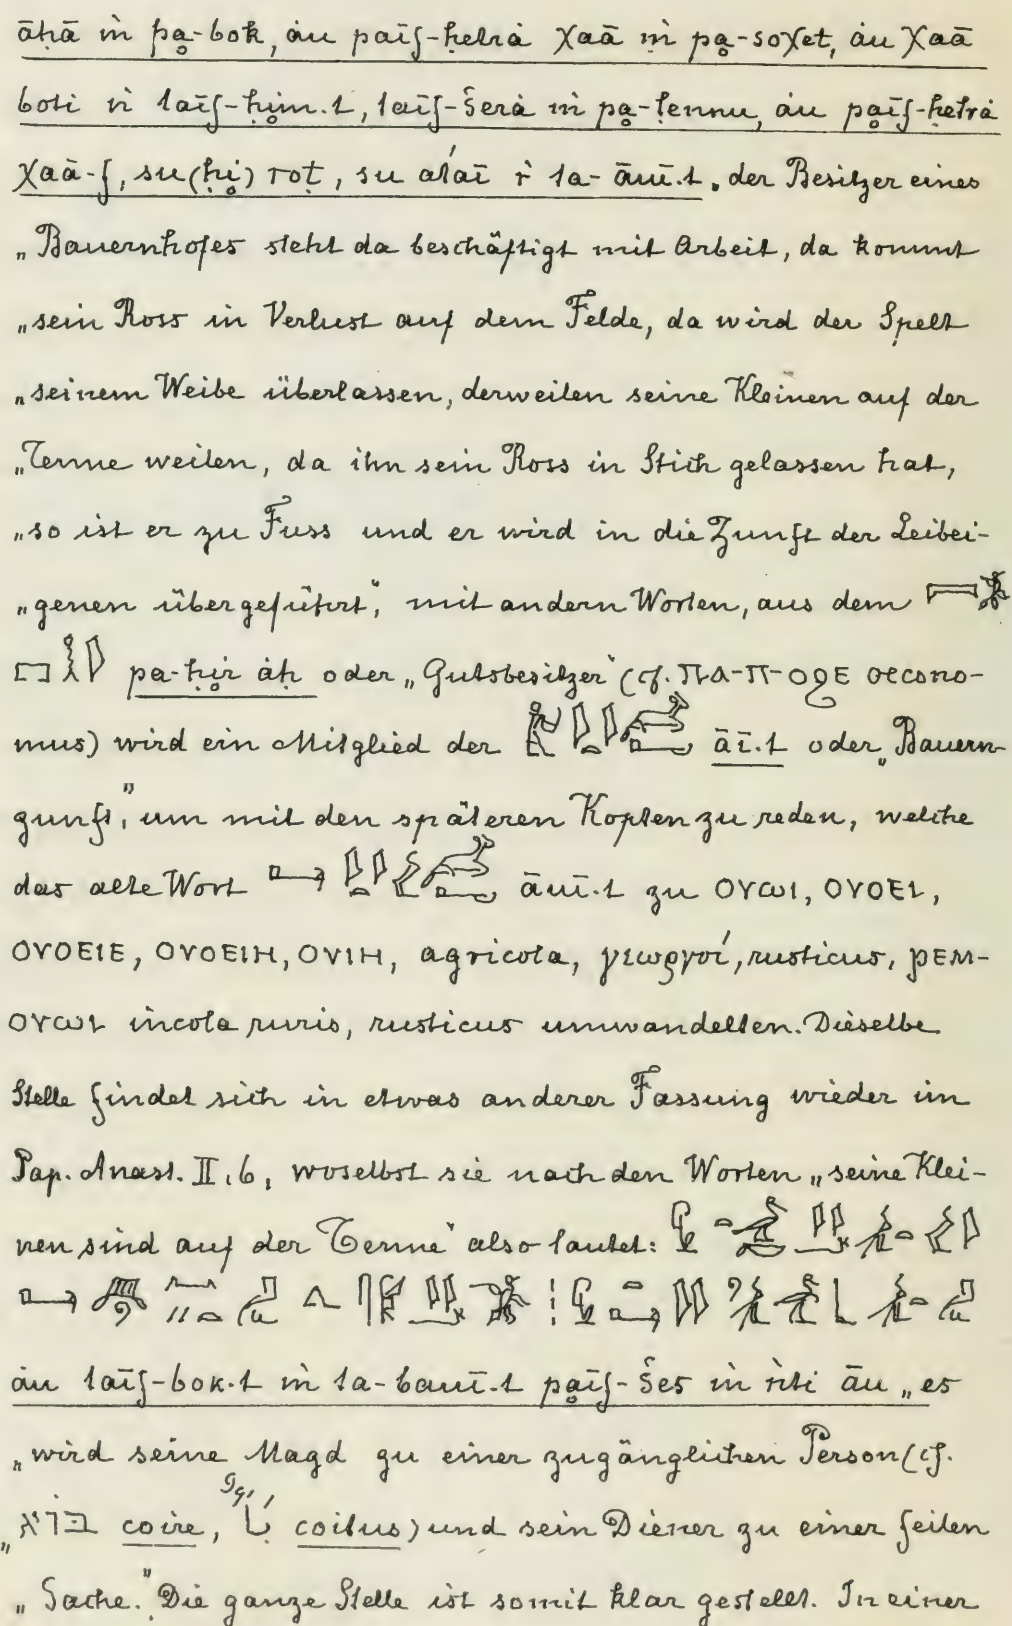 āḥā m̀ pạ-bok, àu païf-ḥetrà χaā m̀ pạ-soχet, àu χaā
boti ǹ taïf-ḥim.t, taïf-šerà m̀ pạ-ṭennu, àu pạïf-ḥetrà
χaā-f, su (ḥi) roṭ, su aťaï r̀ ta-āuï.t, der Besitzer eines
„Bauernhofes steht da beschäftigt mit Arbeit, da kommt
„sein Ross in Verlust auf dem Felde, da wird der Spelt
„seinem Weibe überlassen, derweilen seine Kleinen auf der
„Tenne weilen, da ihn sein Ross in Stich gelassen hat,
„so ist er zu Fuss und er wird in die Zunft der Leibei-
„genen übergeführt“, mit andern Worten, aus dem
pa-ḥir àḥ oder „Gutsbesitzer“ (cf. ⲠⲀ-Ⲡ-ⲞϨⲈ oecono-
mus) wird ein Mitglied der āï.t oder „Bauern-
zunft“, um mit den späteren Kopten zu reden, welche
das alte Wort āuï.t zu ⲞⲨⲰⲒ, ⲞⲨⲞⲈⲒ,
ⲞⲨⲞⲈⲒⲈ, ⲞⲨⲞⲈⲒⲎ, ⲞⲨⲒⲎ, agricola, γεωργοί, rusticus, ⲢⲈⲘ-
ⲞⲨⲰⲒ incola ruris, rusticus umwandelten. Dieselbe
Stelle findet sich in etwas anderer Fassung wieder im
Pap. Anast. II, 6, woselbst sie nach den Worten „seine Klei-
nen sind auf der Tenne“ also lautet:
àu taïf-bok.t m̀ ta-bauï.t pạïf-šes m̀ ǹti āu „es
„wird seine Magd zu einer zugänglichen Person (cf.
„בוא coire, coitus) und sein Diener zu einer feilen
„Sache.“ Die ganze Stelle ist somit klar gestellt. In einer